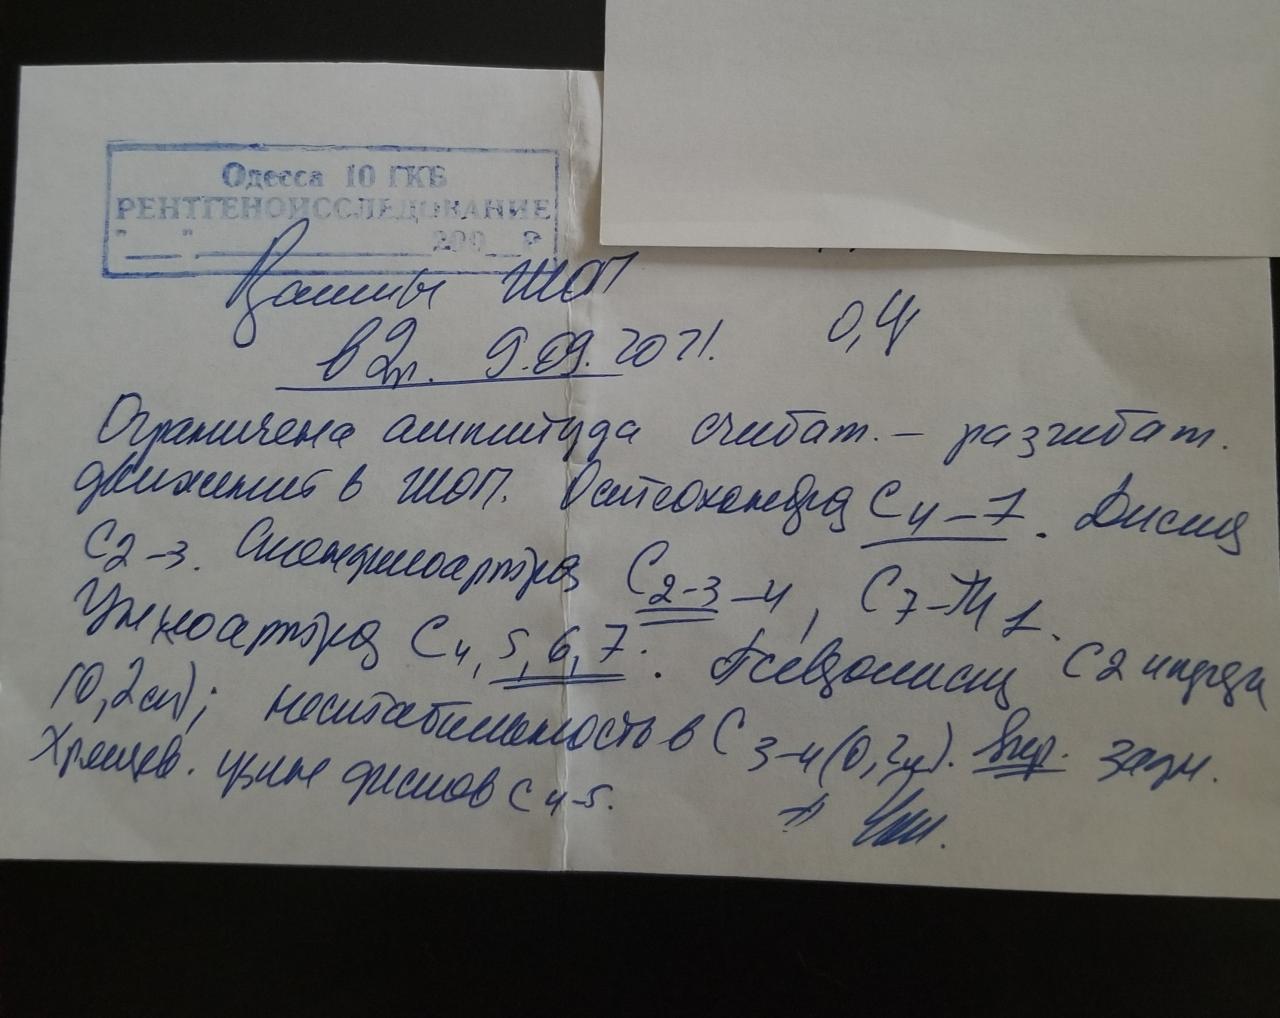 Одесса 10 ГКБ
РЕНТГЕНОИССЛЕДОВАНИЕ
" " 200 Р
ШОП
в 2п. 9.09.2021. 0,4
Ограничена амплитуда сгибат. – разгибат.
движений в ШОП. Остеохондроз С4–7. Дисцит
С2–3. Спондилоартроз С2-3–4, С7–Th1.
Ункоартроз С4, 5, 6, 7. Псевдолистез С2 кпереди
(0,2см); нестабильность в С3-4 (0,2см). задн.
Хрящев. узлы дисков С4-5.